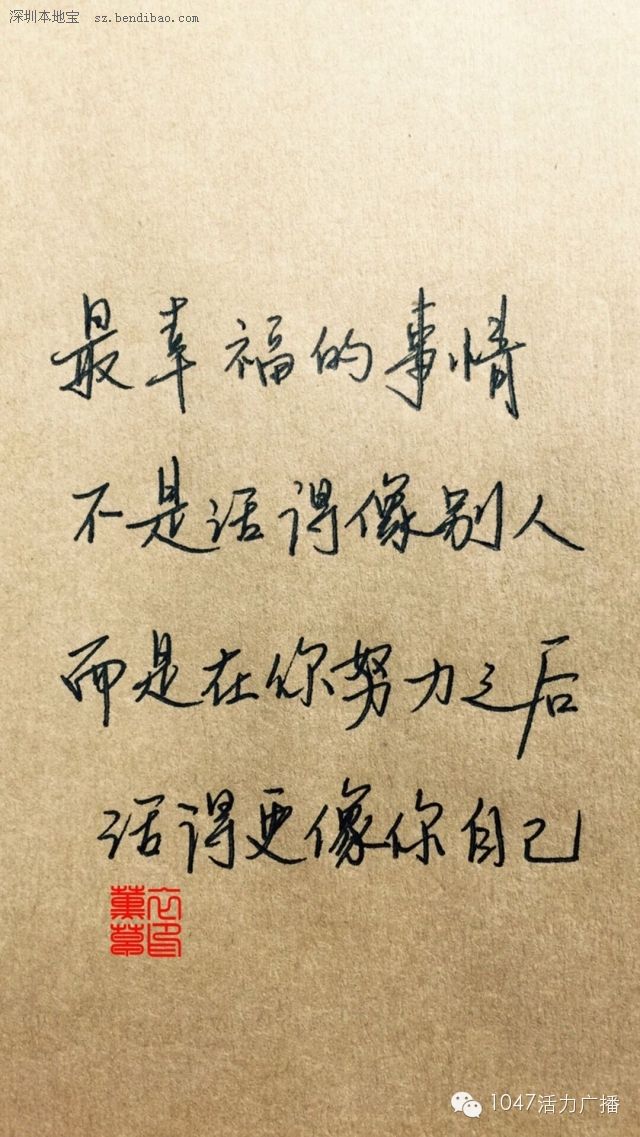 深圳本地宝 sz.bendibao.com
最幸福的事情
不是活得像别人
而是在你努力之后
活得更像你自己
1047活力广播